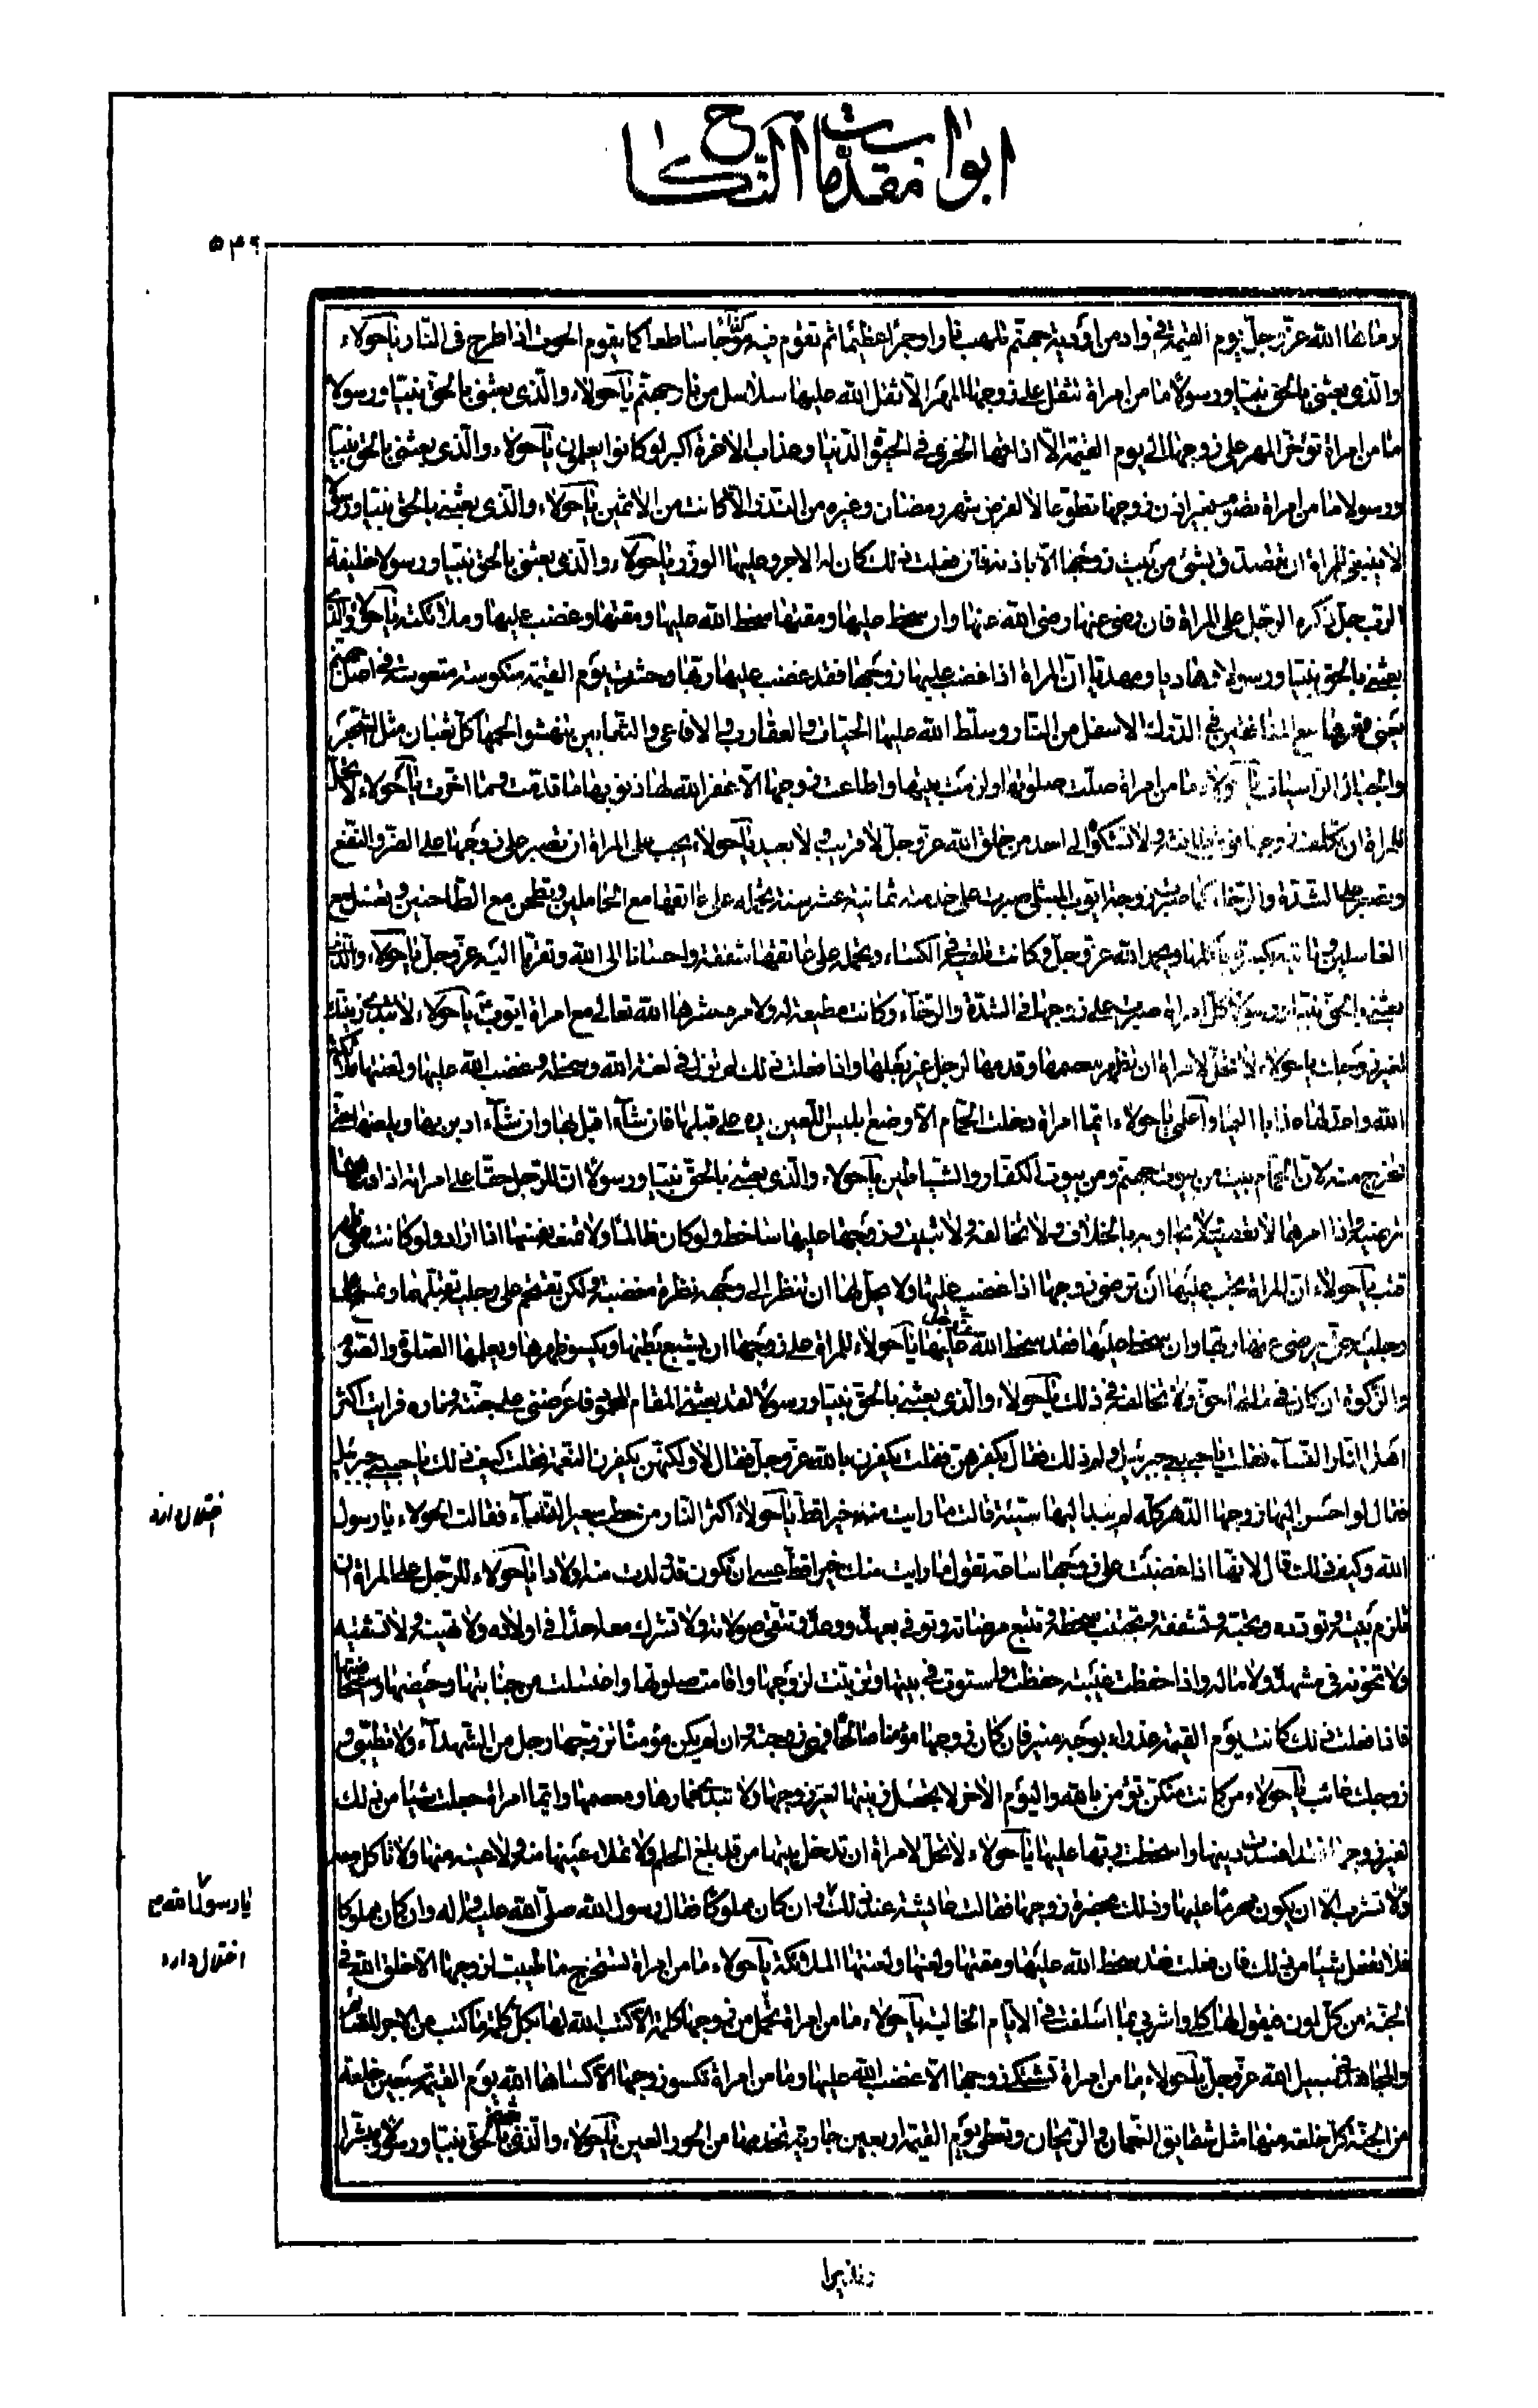 ابواب مقدمات النكاح
٥٤٩
رماها الله عز وجل يوم القيمة في واد من اودية جهنم تلهب نارا وجمرا عظيما ثم تقوم فيه سا طعا كما يقوم الحوت اذا طرح في النار يا حولاء
والذى بعثنى بالحق نبيا ورسولا ما من امراة تثقل على زوجها المهر الا ثقل الله عليها سلاسل من نار جهنم يا حولاء والذى بعثنى بالحق نبيا ورسولا
ما من امراة تؤخر المهر على زوجها الى يوم القيمة الا اذاقها الخزى فى الحيوة الدنيا وعذاب الاخرة اكبر لو كانوا يعلمون يا حولاء والذى بعثنى بالحق نبيا
ورسولا ما من امراة تصوم بغير اذن زوجها تطوعا لا لفرض شهر رمضان وغيره من النذر الا كانت من الاثمين يا حولاء والذى بعثنى بالحق نبيا ورسولا
لا ينبغى للمراة ان تتصدق بشئ من بيت زوجها الا باذنه فان فعلت ذلك كان له الاجر وعليها الوزر يا حولاء والذى بعثنى بالحق نبيا ورسولا خليفة
الرب جل ذكره الرجل على المراة فان رضى عنها رضى الله عنها وان سخط عليها ومقتها سخط الله عليها ومقتها وغضب عليها وملائكته يا حولاء والذى
بعثنى بالحق نبيا ورسولا هاديا ومهديا ان المراة اذا غضب عليها زوجها فقد غضب عليها ربها وحشرت يوم القيمة منكوسة متعوسة فى اصل جهنم
يعنى قعرها مع المنافقين فى الدرك الاسفل من النار وسلط الله عليها الحيات والعقارب والافاعى والثعابين ينهشوا لحمها كل ثعبان مثل الشجر
والجبال الراسيات يا حولاء ما من امراة صلت صلوتها ولزمت بيتها واطاعت زوجها الا غفر الله لها ذنوبها ما قدمت وما اخرت يا حولاء لا يحل
للمراة ان تكلف زوجها فوق طاقته ولا تشكوا الى احد من خلق الله عز وجل لا قريب ولا بعيد يا حولاء يجب على المراة ان تصبر على زوجها على الضر والنفع
وتصبر على الشدة والرخاء كما صبرت زوجة ايوب المبتلى صبرت على خدمته ثمانية عشر سنة تحمله على عاتقها مع الحاملين وتطحن مع الطاحنين وتغسل مع
الغاسلين وتاتيه بكسرة ياكلها ويحمد الله عز وجل وكانت تلقيه فى الكساء وتحمله على عاتقها شفقة واحسانا الى الله وتقربا اليه عز وجل يا حولاء والذى
بعثنى بالحق نبيا ورسولا كل امراة صبرت على زوجها فى الشدة والرخاء وكانت مطيعة له ولامره حشرها الله تعالى مع امراة ايوب يا حولاء لا تبدى زينتك
لغير زوجك يا حولاء لا يحل لامراة ان تظهر معصمها وقدمها لرجل غير بعلها واذا فعلت ذلك لم تزل فى لعنة الله وسخطه وغضب الله عليها ولعنتها ملائكة
الله واعد لها عذابا اليما واعلمى يا حولاء ايما امراة دخلت الحمام الا وضع ابليس اللعين يده على قبلها فان شاء اقبل بها وان شاء ادبر بها ويلعنها حتى
تخرج منه لان الحمام بيت من بيوت جهنم ومن بيوت الكفار والشياطين يا حولاء والذى بعثنى بالحق نبيا ورسولا ان للرجل حقا على امراته اذا دعاها
ترضيه واذا امرها لا تعصيه ولا تجاوبه بالخلاف ولا تخالفه ولا تبيت وزوجها عليها ساخط ولو كان ظالما ولا تمنعه نفسها اذا اراد ولو كانت على ظهر
قتب يا حولاء ان المراة يجب عليها ان ترضى زوجها اذا غضب عليها ولا يحل لها ان تنظر الى وجهه نظرة مغضبة ولكن تقتحم على رجليه تقبلهما وتمسح على
رجليه حتى يرضى عنها ربها وان سخط عليها فقد سخط الله عز وجل عليها يا حولاء للمراة على زوجها ان يشبع بطنها ويكسو ظهرها ويعلمها الصلوة والصوم
والزكوة ان كان فى مالها حق ولا تخالفه فى ذلك يا حولاء والذى بعثنى بالحق نبيا ورسولا لقد بعثنى المقام المحمود فاعرضنى على جنته وناره فرايت اكثر
اهل النار النساء فقلت يا حبيبى جبرئيل ولم ذلك فقال بكفرهن فقلت يكفرن بالله عز وجل فقال لا ولكنهن يكفرن النعمة فقلت كيف ذلك يا حبيبى جبرئيل
فقال لو احسن اليها زوجها الدهر كله لم يبد اليها سيئة قالت ما رايت منه خيرا قط يا حولاء اكثر النار من حطب سعير النساء فقالت الحولاء يا رسول
الله وكيف ذلك قال لانها اذا غضبت على زوجها ساعة تقول ما رايت منك خيرا قط عسى ان تكون قد ولدت منه اولادا يا حولاء للرجل على المراة ان
تلزم بيته وتودده وتحبه وتشفقه وتجتنب سخطه وتتبع مرضاته وتوفى بعهده ووعده وتتقى صولاته ولا تشرك معه احدا فى اولاده ولا تهينه ولا تشقيه
ولا تخونه فى مشهده ولا ماله واذا حفظت غيبته حفظت واستوت فى بيتها وتزينت لزوجها واقامت صلوتها واغتسلت من جنابتها وحيضها واستحاضتها
فاذا فعلت ذلك كانت يوم القيمة عذراء بوجه منير فان كان زوجها مؤمنا صالحا فهى زوجته وان لم يكن مؤمنا تزوجها رجل من الشهداء ولا تطيبى و
زوجك غائب يا حولاء من كانت منكن تؤمن بالله واليوم الاخر لا تجعل زينتها لغير زوجها ولا تبدى خمارها ومعصمها وايما امراة جعلت شيئا من ذلك
لغير زوجها فقد افسدت دينها واسخطت ربها عليها يا حولاء لا يحل لامراة ان تدخل بيتها من قد بلغ الحلم ولا تملاء عينها منه ولا عينه منها ولا تاكل معه
ولا تشرب الا ان يكون محرما عليها وذلك بحضرة زوجها فقالت عائشة عند ذلك وان كان مملوكا فقال رسول الله صلى الله عليه واله وان كان مملوكا
فلا تفعل شيئا من ذلك فان فعلت فقد سخط الله عليها ومقتها ولعنها ولعنتها الملائكة يا حولاء ما من امراة تستخرج ما طيبت لزوجها الا خلق الله فى
الجنة من كل لون فيقول لها كلى واشربى بما اسلفت فى الايام الخالية يا حولاء ما من امراة تحمل من زوجها كلمة الا كتب الله لها بكل كلمة ما كتب من الاجر للصائم
والمجاهد فى سبيل الله عز وجل يا حولاء ما من امراة تشتكى زوجها الا غضب الله عليها وما من امراة تكسو زوجها الا كساها الله يوم القيمة سبعين خلعة
من الجنة كل خلعة منها مثل شقايق النعمان والريحان وتعطى يوم القيمة اربعين جارية تخدمها من الحور العين يا حولاء والذى بعثنى بالحق نبيا ورسولا ومبشرا
اختلال دارد
يا رسول الله ص ح
اختلال دارد
ونذيرا